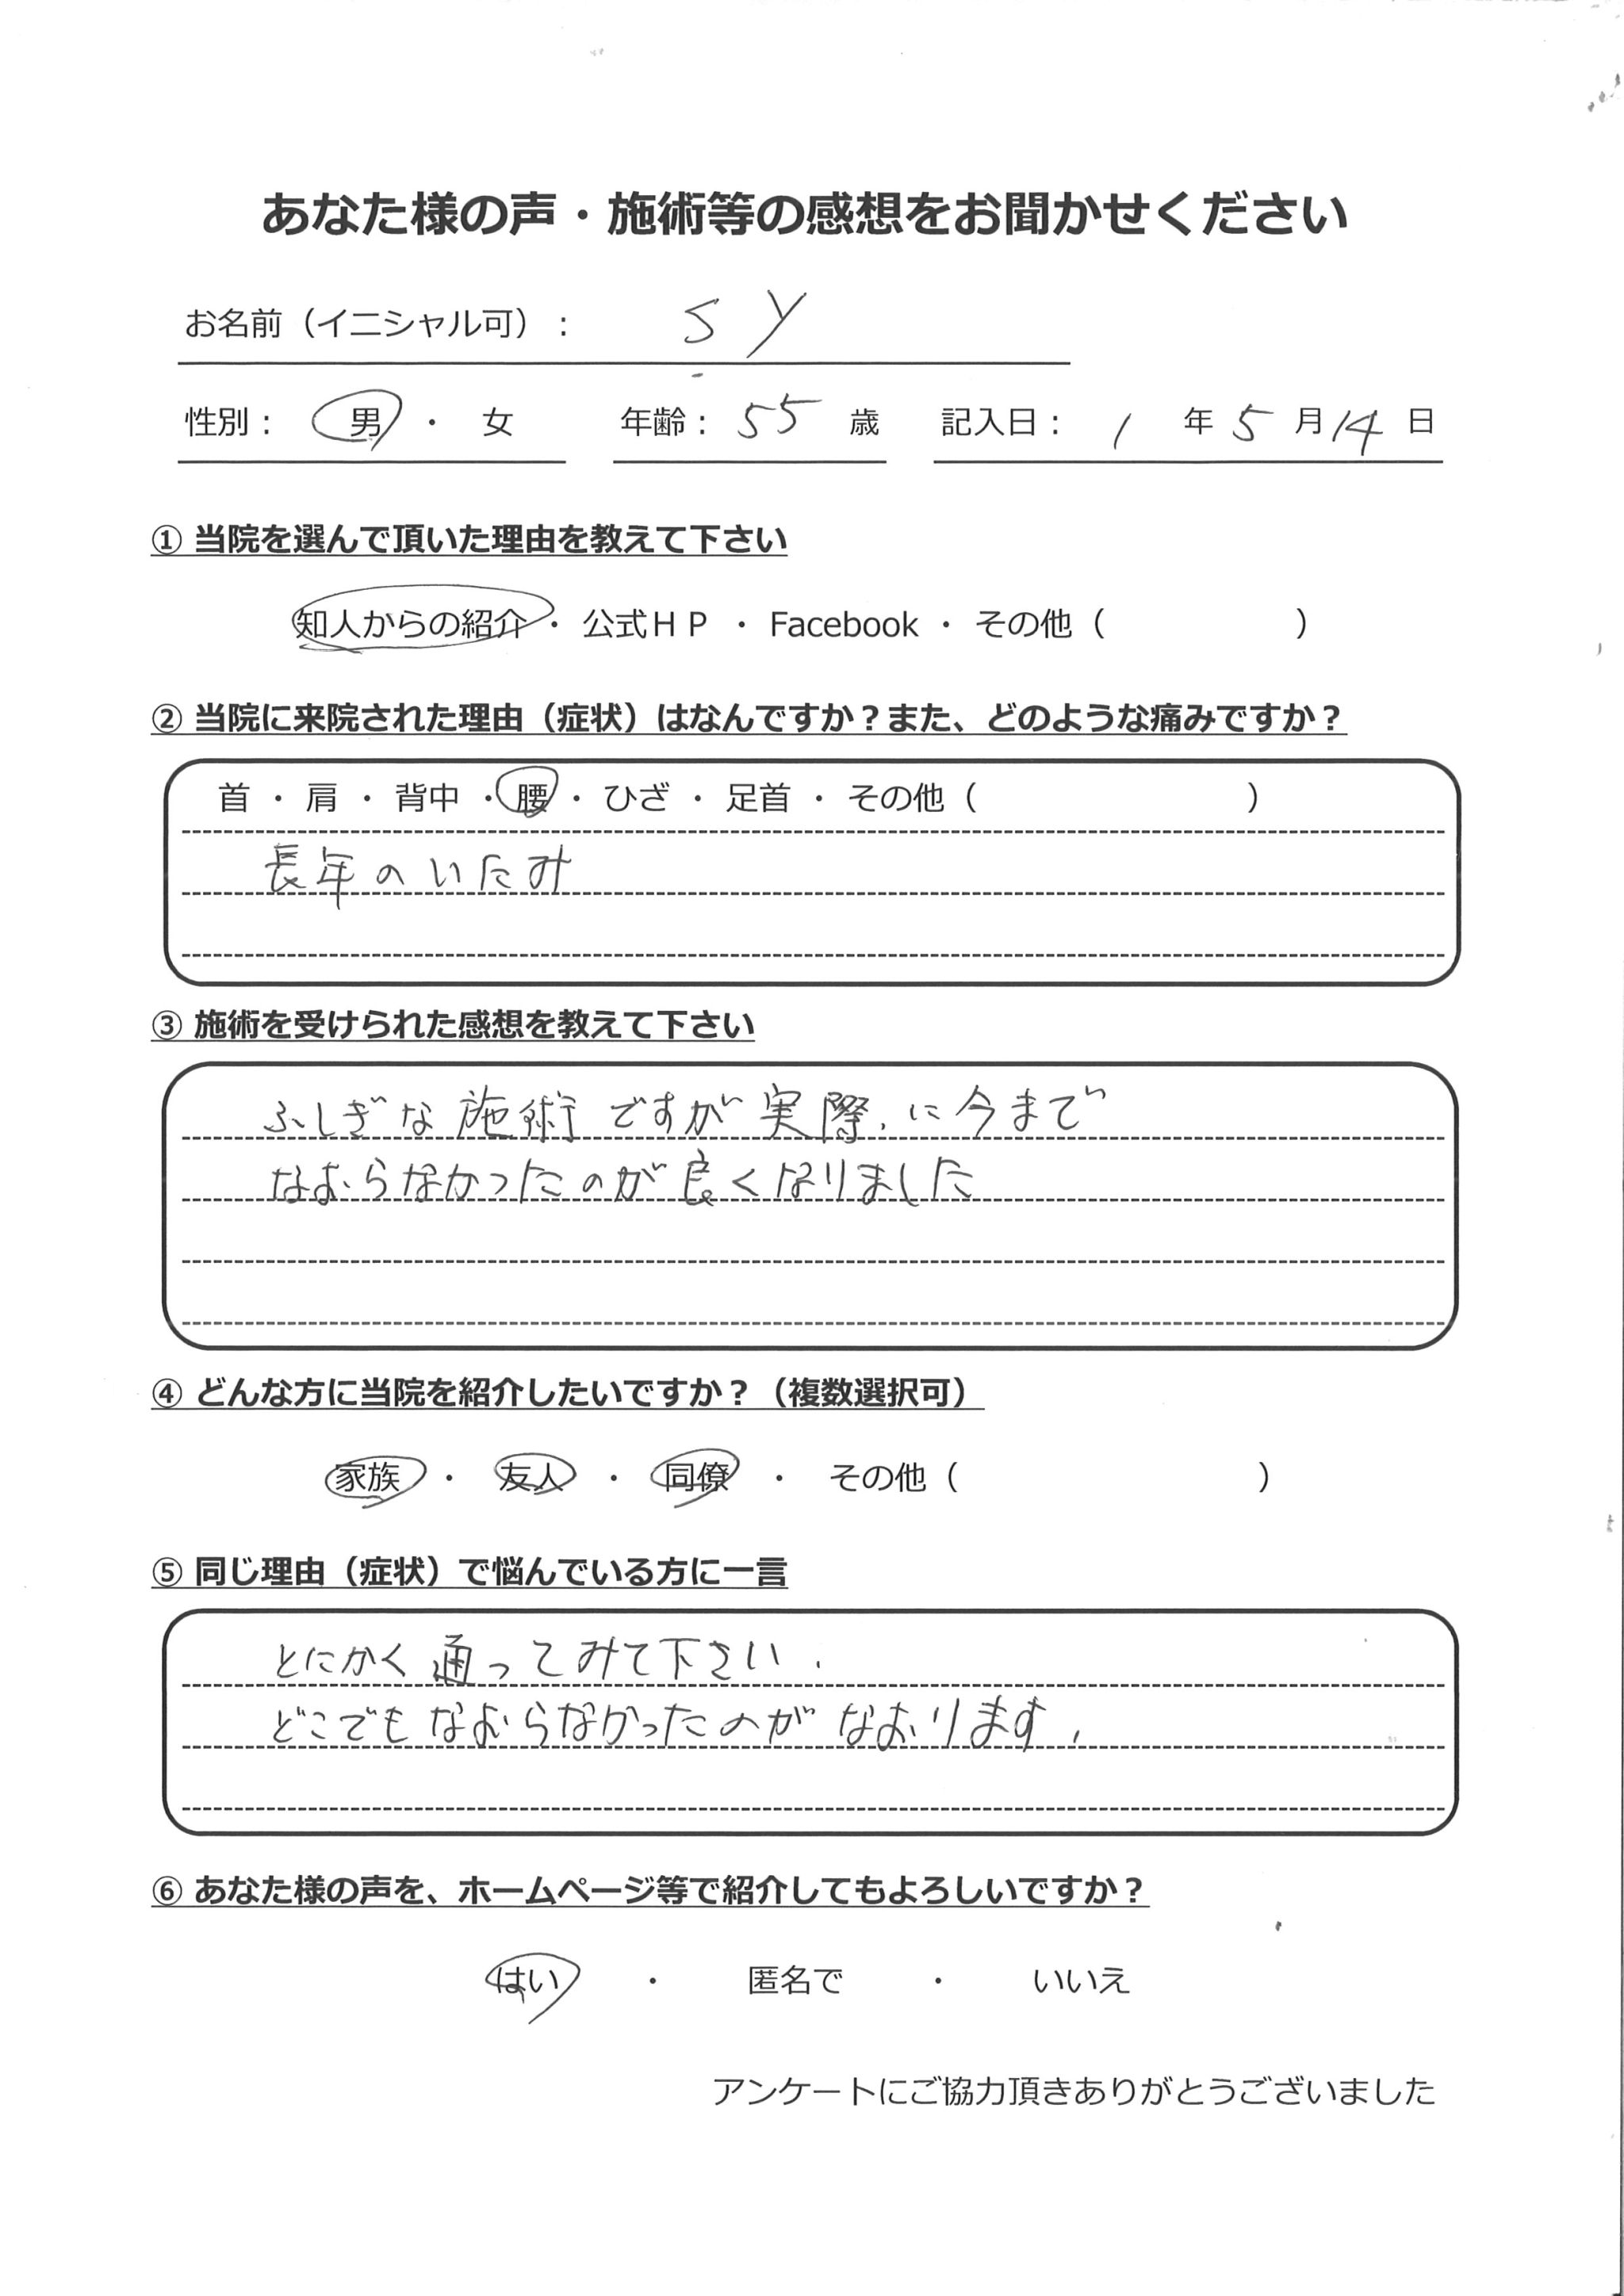 あなた様の声・施術等の感想をお聞かせください
お名前（イニシャル可）： S Y
性別： 男 ・ 女 年齢： 55 歳 記入日： 1 年 5 月 14 日
① 当院を選んで頂いた理由を教えて下さい
知人からの紹介 ・ 公式ＨＰ ・ Facebook ・ その他（ ）
② 当院に来院された理由（症状）はなんですか？また、どのような痛みですか？
首 ・ 肩 ・ 背中 ・ 腰 ・ ひざ ・ 足首 ・ その他（ ）
長年のいたみ
③ 施術を受けられた感想を教えて下さい
ふしぎな施術ですが実際、に今まで
なおらなかったのが良くなりました
④ どんな方に当院を紹介したいですか？（複数選択可）
家族 ・ 友人 ・ 同僚 ・ その他（ ）
⑤ 同じ理由（症状）で悩んでいる方に一言
とにかく通ってみて下さい、
どこでもなおらなかったのがなおります、
⑥ あなた様の声を、ホームページ等で紹介してもよろしいですか？
はい ・ 匿名で ・ いいえ
アンケートにご協力頂きありがとうございました